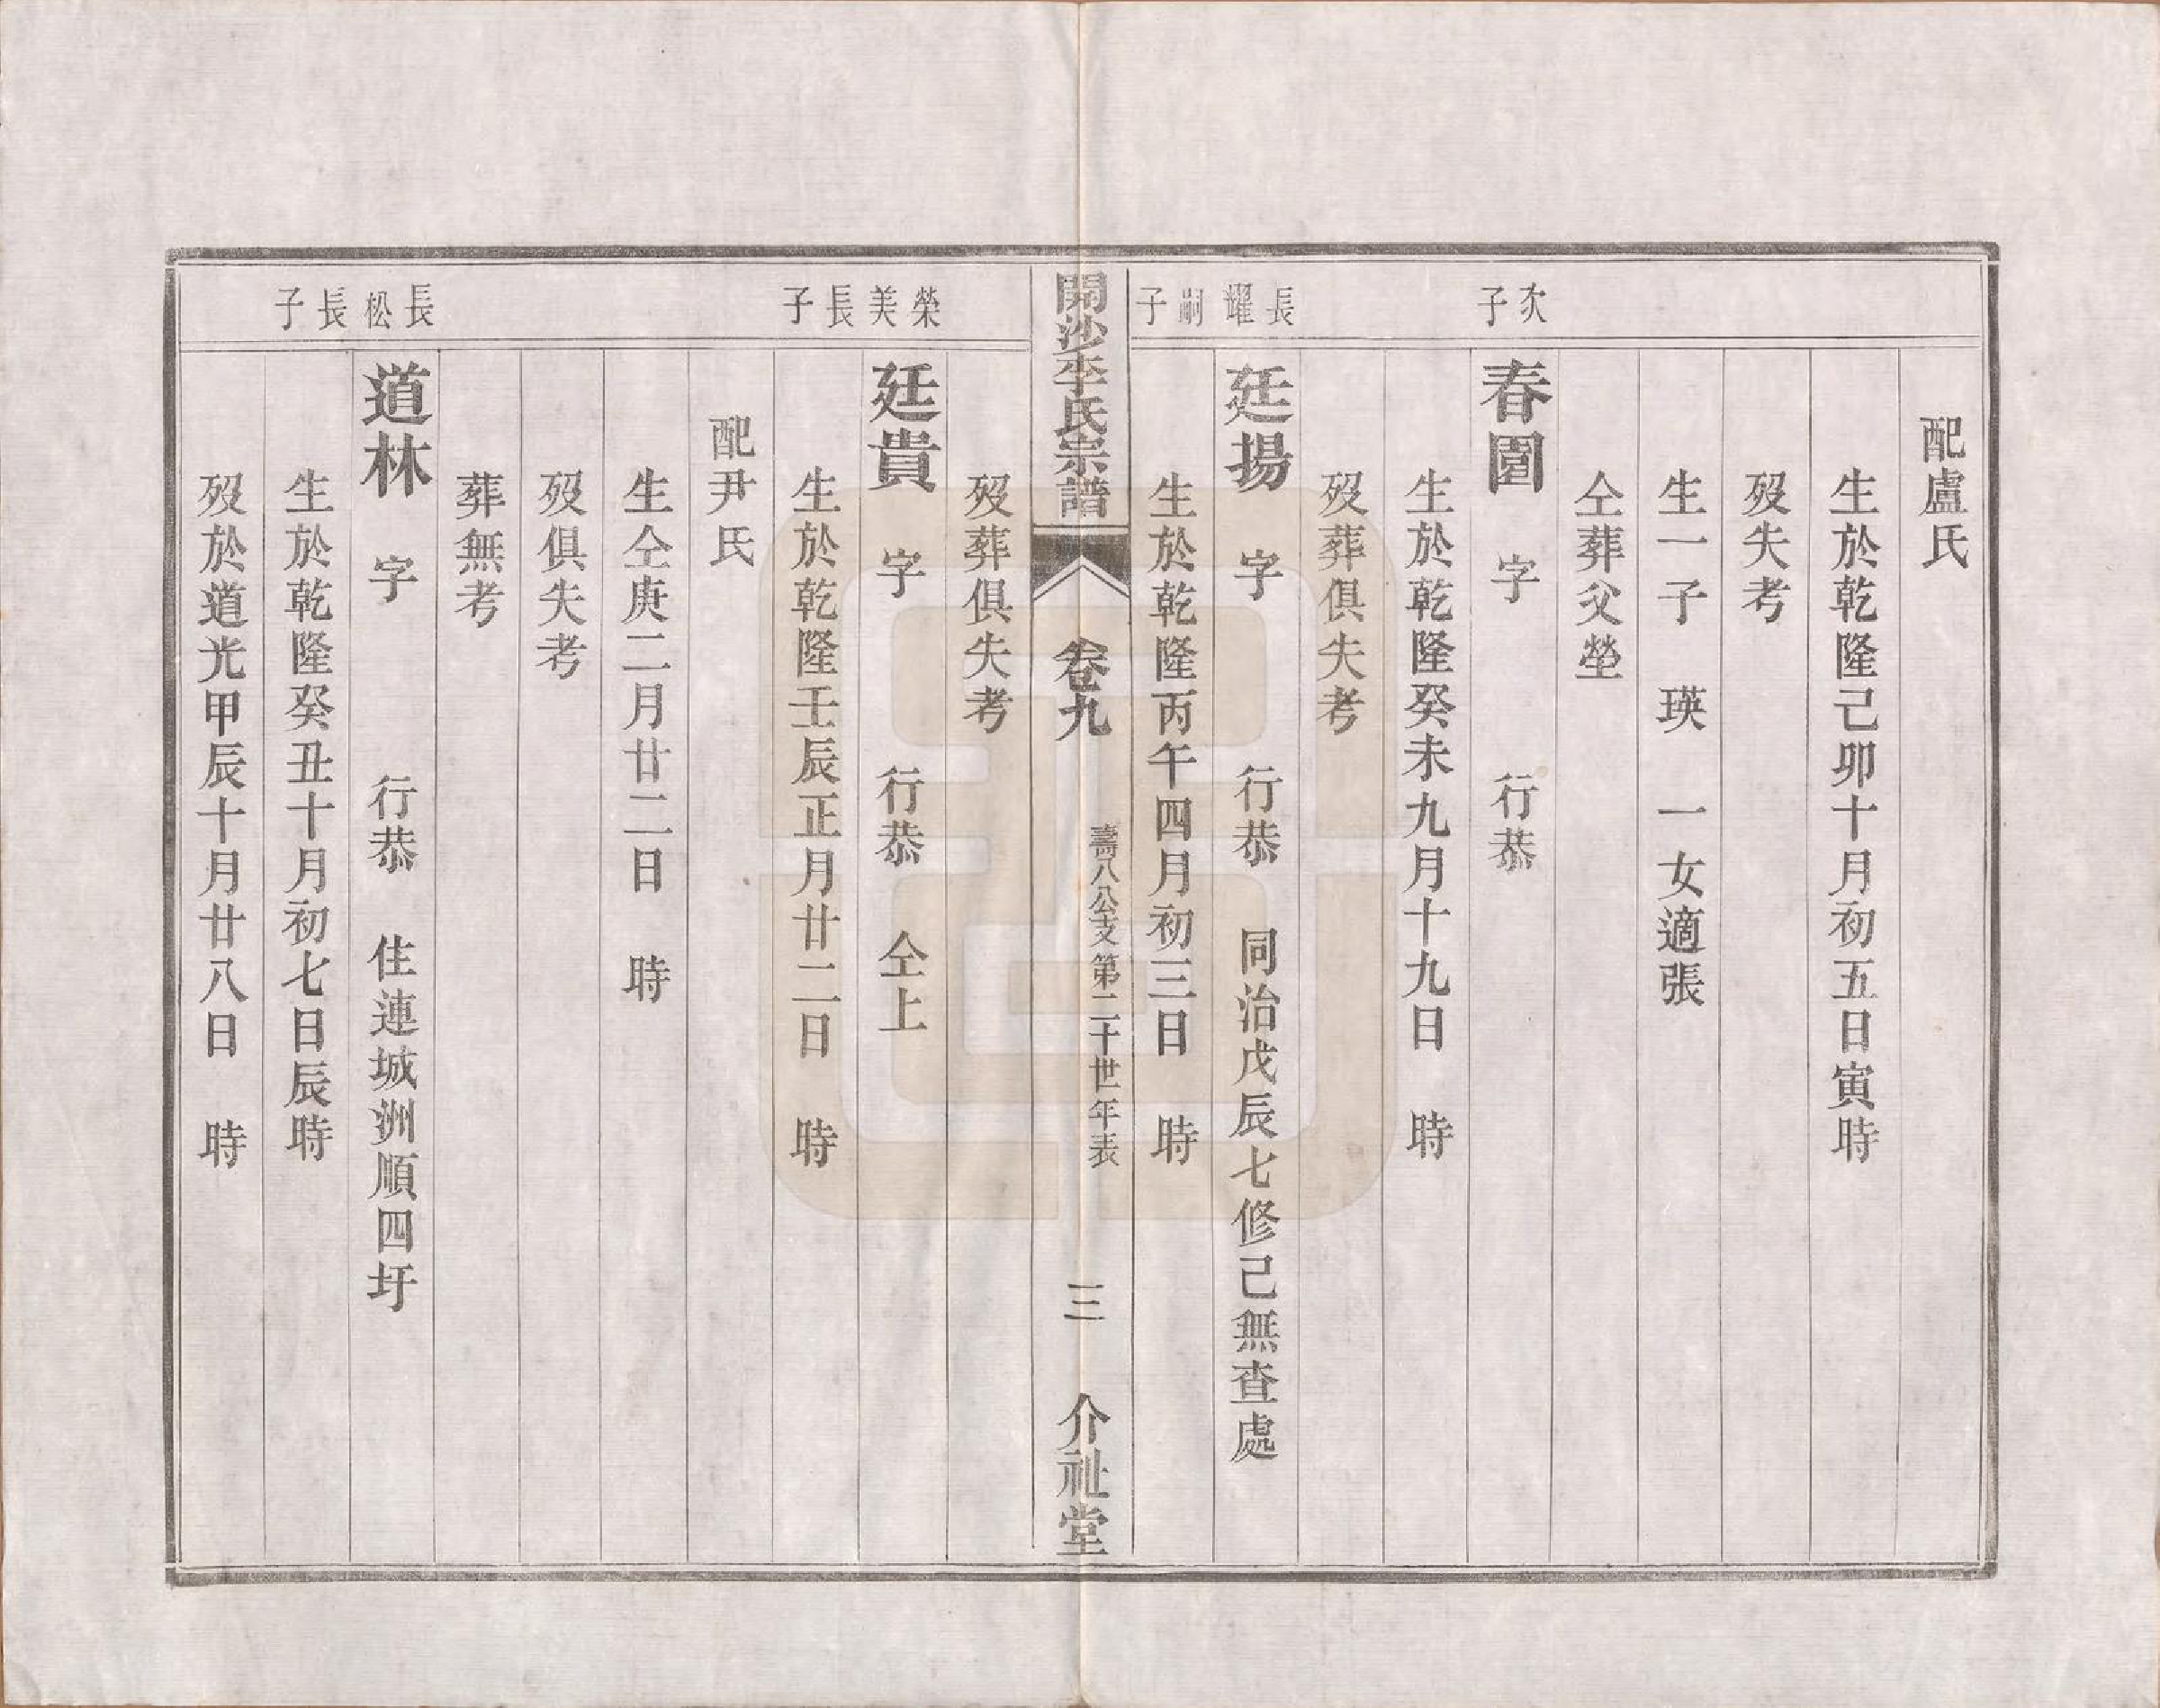 配盧氏
生於乾隆己卯十月初五日寅時
歿失考
生一子　瑛　一女適張
仝葬父塋
次子
春園　字　行恭
生於乾隆癸未九月十九日　時
歿葬俱失考
長耀嗣子
廷揚　字　行恭　同治戊辰七修己無查處
生於乾隆丙午四月初三日　時
開沙李氏宗譜　卷九　壽八公支第二十世年表　三　介祉堂
歿葬俱失考
榮美長子
廷貴　字　行恭　仝上
生於乾隆壬辰正月廿二日　時
配尹氏
生仝庚二月廿二日　時
歿俱失考
葬無考
長松長子
道林　字　行恭　住連城洲順四圩
生於乾隆癸丑十月初七日辰時
歿於道光甲辰十月廿八日　時